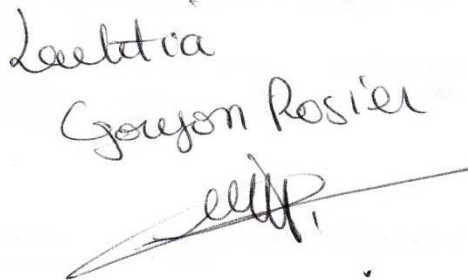 Laetitia
Goujon Rosier